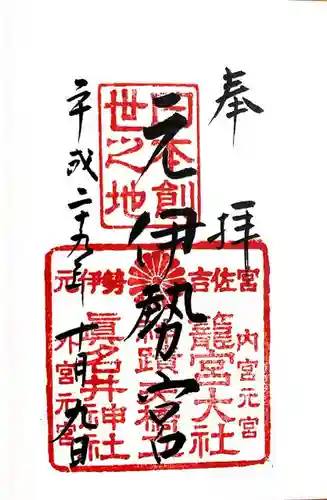 奉拝
日本創
世之地
元伊勢宮
元伊勢
吉佐宮
内宮元宮
籠宮大社
眞名井神社
外宮元宮
平成二十九年十月九日